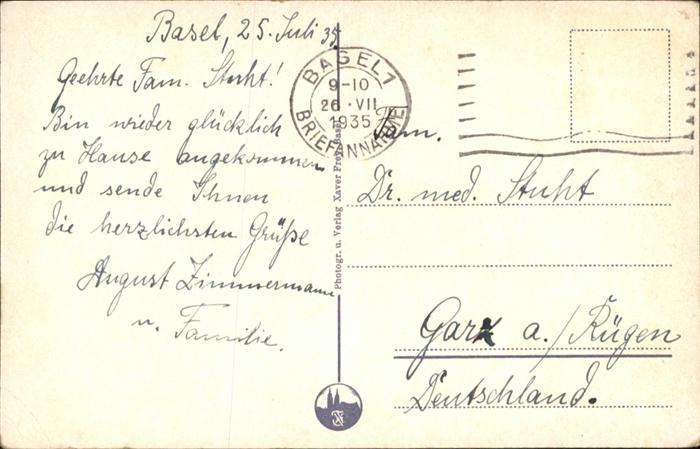 Basel, 25. Juli 35
Geehrte Fam. Stuht!
Bin wieder glücklich
zu Hause angekommen
und sende Ihnen
die herzlichsten Grüße
August Zimmermann
u. Familie.
Photogr. u. Verlag Xaver Frey, Basel
BASEL 1
9-10
26·VII
1935
BRIEFANNAHME
Fam.
Dr. med. Stuht
Garz a./Rügen
Deutschland.